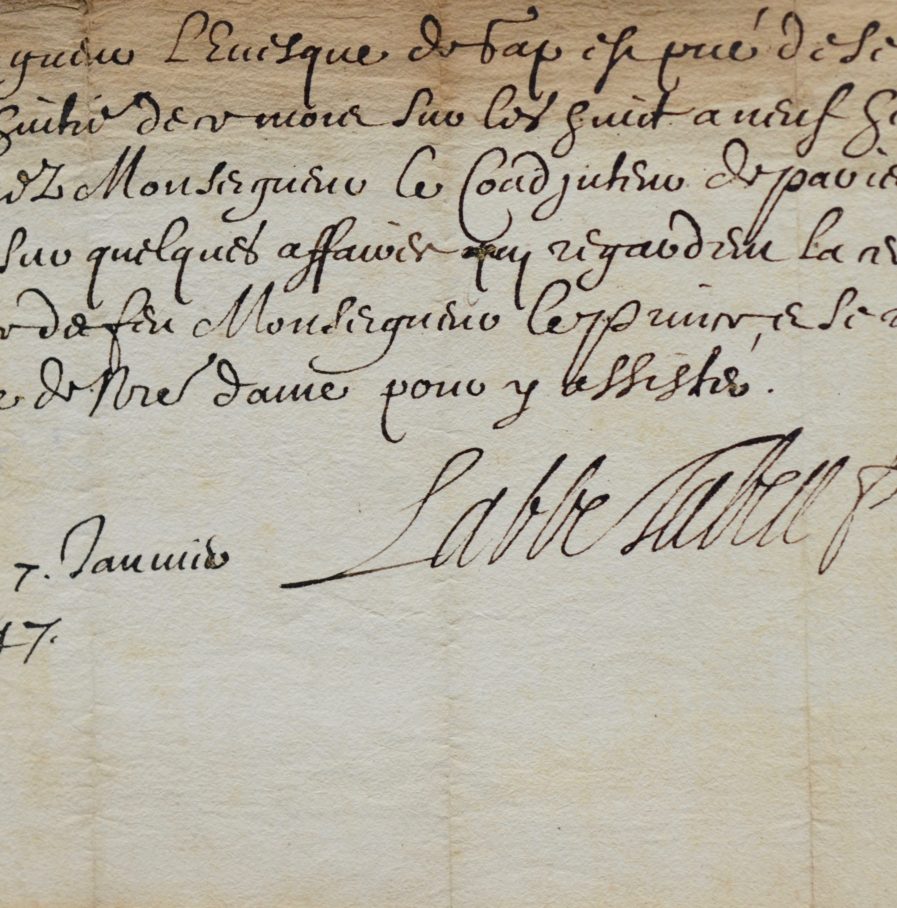 gneur L'Evesque de Gap est prié de se
huitie de ce mois sur les huict a neuf h
ez Monseigneur le Coadjuteur de paris
sur quelques affaires qui regardent la re
de feu Monseigneur le prince se
e de Nre dame pour y assister.
Labbe Tabell
7. Januier
47.